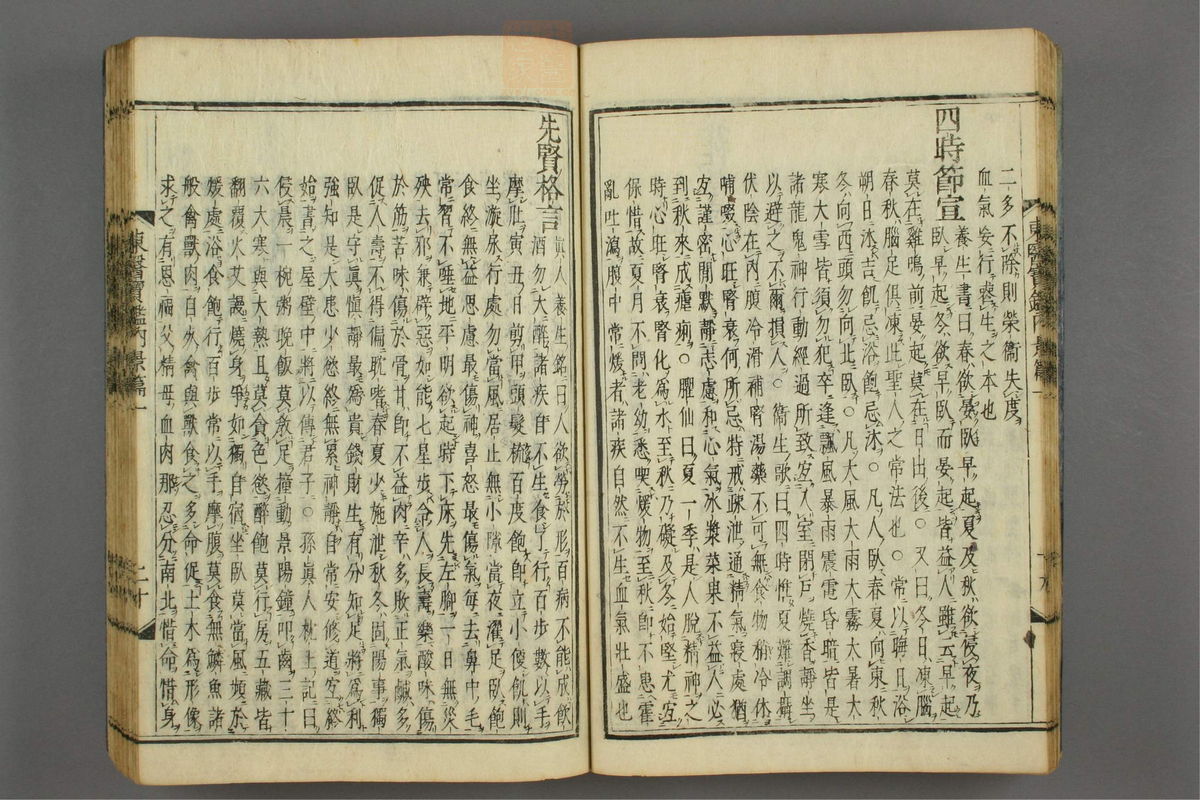 二多不除則榮衛失度
血氣妄行喪生之本也
四時節宣
養生書曰春欲晏臥早起夏及秋欲侵夜乃
臥早起冬欲早臥而晏起皆益人雖云早起
莫在雞鳴前晏起莫在日出後○又曰冬日凍腦
春秋腦足俱凍此聖人之常法也○常以晦日浴
朔日沐吉飢忌浴飽忌沐○凡人臥春夏向東秋
冬向西頭勿向北臥○凡大風大雨大霧大暑大
寒大雪皆須勿犯卒逢飄風暴雨震電昏暗皆是
諸龍鬼神行動經過所致宜入室閉戶燒香靜坐
以避之不爾損人○衛生歌曰四時惟夏難調攝
伏陰在內腹冷滑補腎湯藥不可無食物稍冷休
哺啜心旺腎衰何所忌特戒疎泄通精氣寢處猶
宜謹密間默靜志慮和心氣冰漿菜果不益人必
到秋來成瘧痢○臞仙曰夏一季是人脫精神之
時心旺腎衰腎化爲水至秋乃凝及冬始堅尤宜
保惜故夏月不問老幼悉喫煖物至秋即不患霍
亂吐瀉腹中常煖者諸疾自然不生血氣壯盛也
東醫寶鑑內景篇一
十九
先賢格言
眞人養生銘曰人欲勞於形百病不能成飲
酒勿大醉諸疾自不生食了行百步數以手
摩肚寅丑日剪甲頭髮梳百度飽即立小便飢則
坐漩尿行處勿當風居止無小隙當夜濯足臥飽
食終無益思慮最傷神喜怒最傷氣每去鼻中毛
常習不唾地平明欲起時下床先左脚一日無災
殃去邪兼辟惡如能七星步令人長壽樂酸味傷
於筋苦味傷於骨甘即不益肉辛多敗正氣鹹多
促人壽不得偏耽嗜春夏少施泄秋冬固陽事獨
臥是守眞愼靜最爲貴錢財生有分知足將爲利
強知是大患少慾終無累神靜自常安修道宜終
始書之屋壁中將以傳君子○孫眞人枕上記曰
侵晨一椀粥晚飯莫敎足撞動景陽鐘叩齒三十
六大寒與大熱且莫貪色慾醉飽莫行房五藏皆
翻覆火艾謾燒身爭如獨自宿坐臥莫當風頻於
煖處浴食飽行百步常以手摩腹莫食無鱗魚諸
般禽獸肉自死禽與獸食之多命促土木爲形像
求之有恩福父精母血肉那忍分南北惜命惜身
東醫寶鑑內景篇一
二十